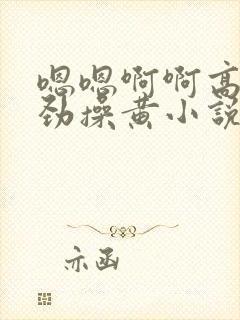 嗯嗯啊啊高
劲操黄小説
亦函